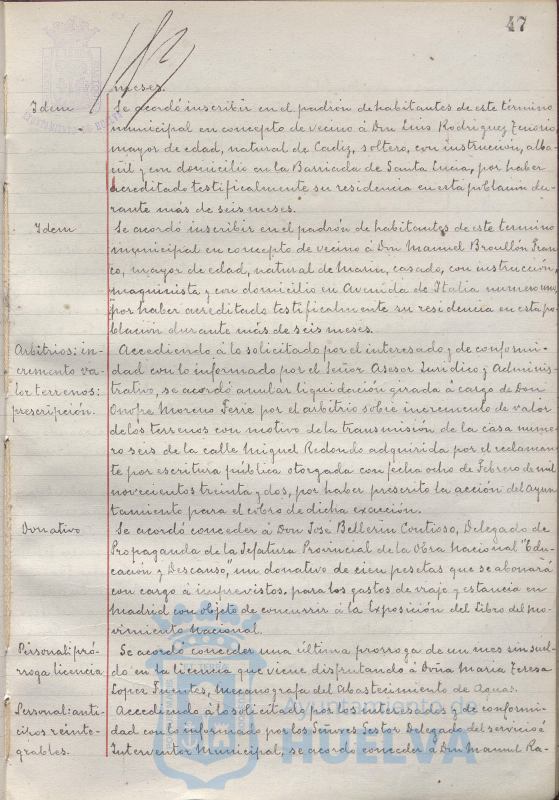 47
meses.
Idem
Se acordó inscribir en el padrón de habitantes de este término
municipal en concepto de vecino á Don Luis Rodriguez Tenorio
mayor de edad, natural de Cadiz, soltero, con instrucción, alba-
ñil y con domicilio en la Barriada de Santa Lucia, por haber
acreditado testificalmente su residencia en esta poblacion du-
rante más de seis meses.
Idem
Se acordó inscribir en el padrón de habitantes de este termino
municipal en concepto de vecino á Don Manuel Broullón Fran-
co, mayor de edad, natural de Marin, casado, con instrucción,
maquinista y con domicilio en Avenida de Italia numero uno,
por haber acreditado testificalmente su residencia en esta po-
blación durante más de seis meses.
Arbitrios: in-
cremento va-
lor terrenos:
prescripción.
Accediendo á lo solicitado por el interesado y de conformi-
dad con lo informado por el Señor Asesor Juridico y Adminis-
trativo, se acordó anular liquidación girada á cargo de Don
Onofre Moreno Ferie por el arbitrio sobre incremento de valor
de los terrenos con motivo de la transmisión de la casa nume-
ro seis de la calle Miguel Redondo adquirida por el reclaman-
te por escritura pública otorgada con fecha ocho de Febrero de mil
novecientos treinta y dos, por haber prescrito la acción del Ayun-
tamiento para el cobro de dicha exacción.
Donativo
Se acordó conceder á Don José Bellerin Contioso, Delegado de
Propaganda de la Jefatura Provincial de la Obra Nacional "Edu-
cación y Descanso", un donativo de cien pesetas que se abonará
con cargo á imprevistos, para los gastos de viaje y estancia en
Madrid con objeto de concurrir á la Exposición del Libro del Mo-
vimiento Nacional.
Personal: pró-
rroga licencia
Se acordó conceder una última prorroga de un mes sin suel-
do en la licencia que viene disfrutando á Doña Maria Teresa
Lopez Fuentes, Mecanografa del Abastecimiento de Aguas.
Personal: anti-
cipos reinte-
grables.
Accediendo á lo solicitado por los interesados y de conformi-
dad con lo informado por los Señores Gestor Delegado del servicio é
Interventor Municipal, se acordó conceder á Don Manuel Ra-
Ayuntamiento de
HUELVA